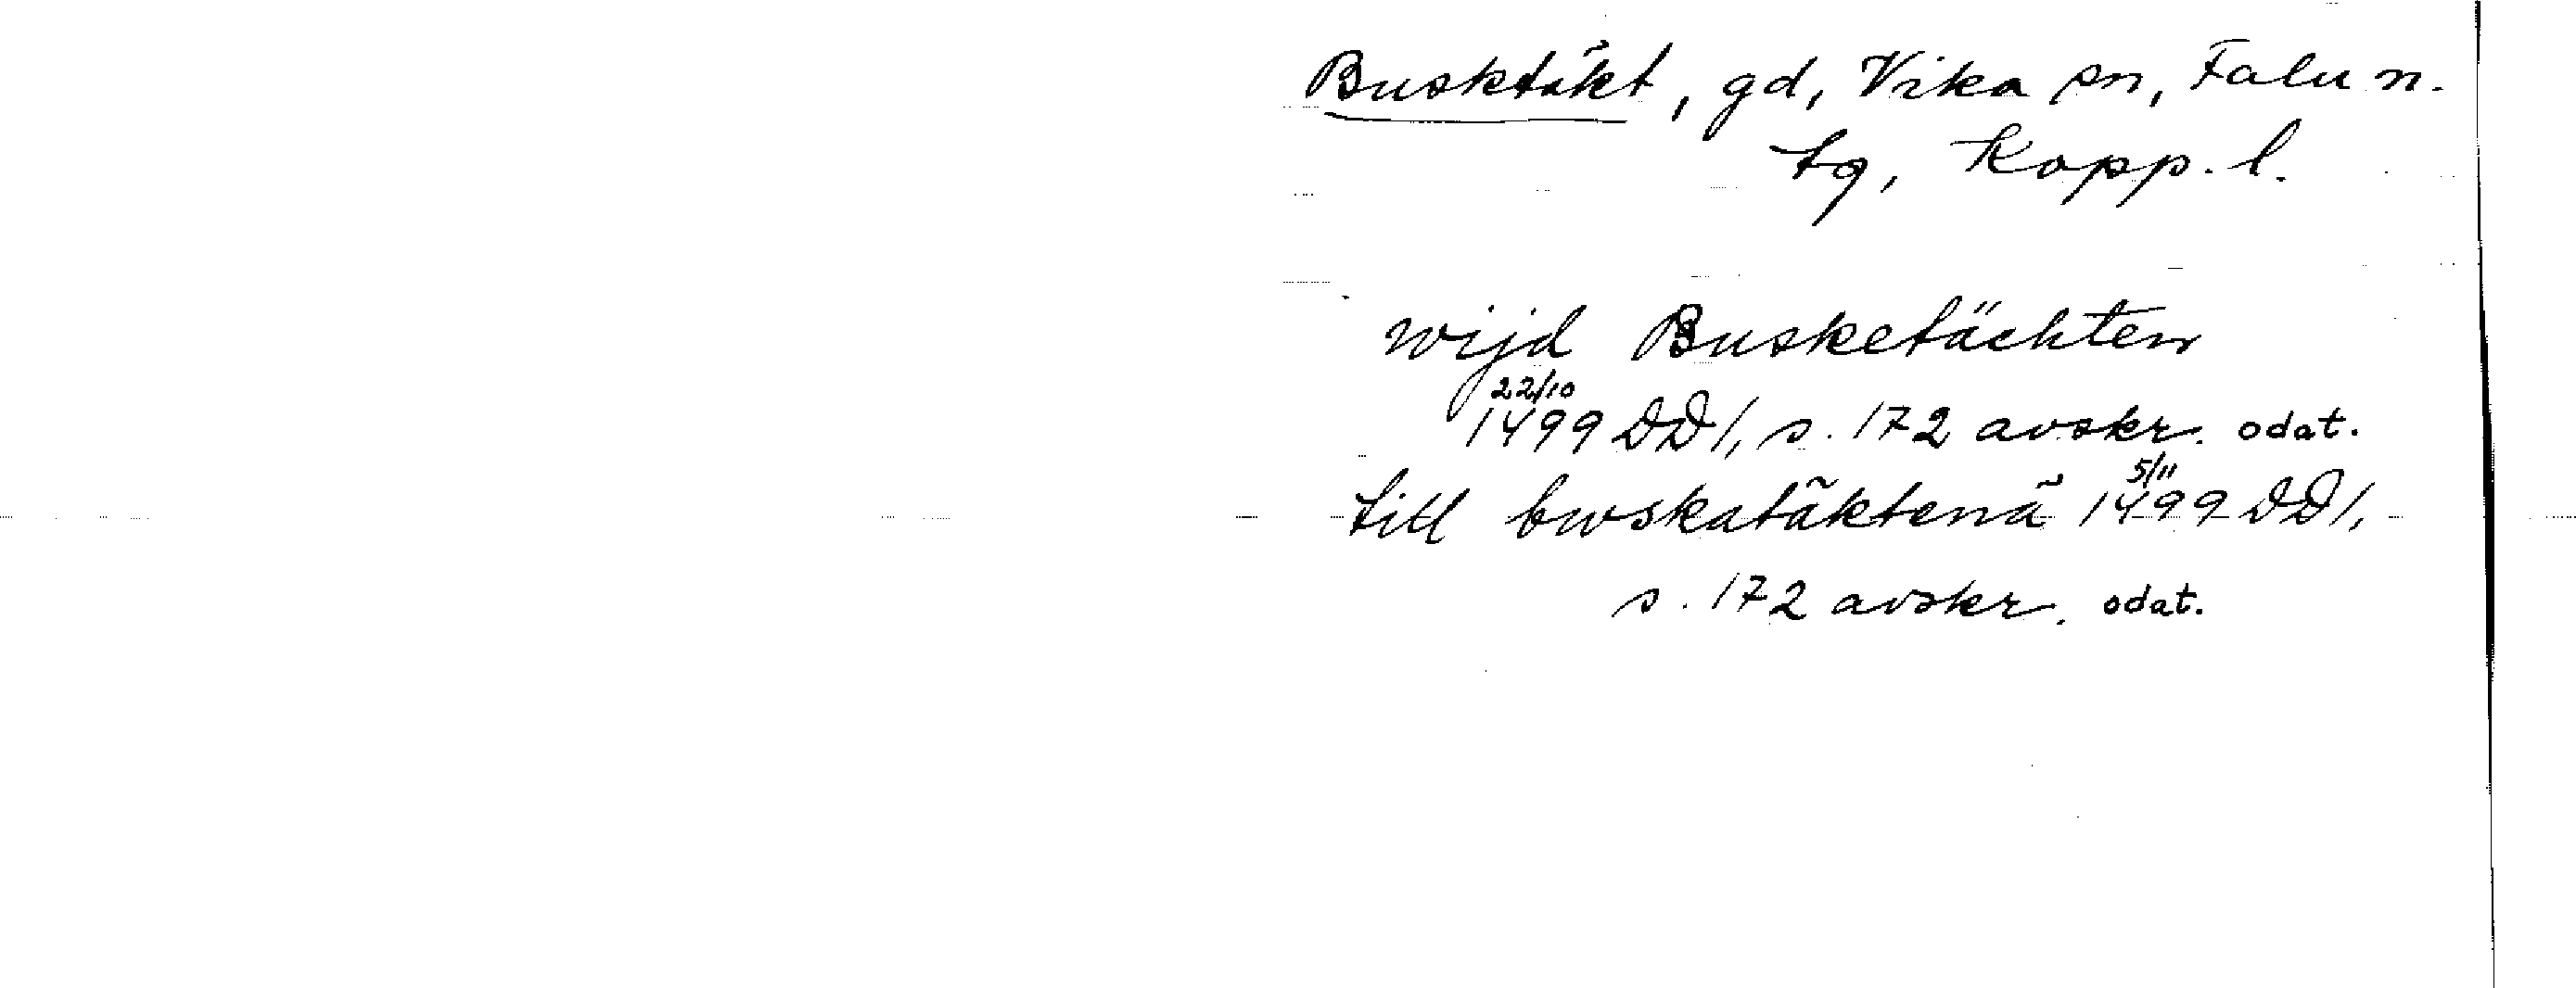 Busktäkt, gd, Vika sn, Falu n.
tg, Kopp. l.
wijd Busketächten
22/10
1499 DD1, s. 172 avskr. odat.
5/11
till bwskatäktenä 1499 DD1,
s. 172 avskr. odat.